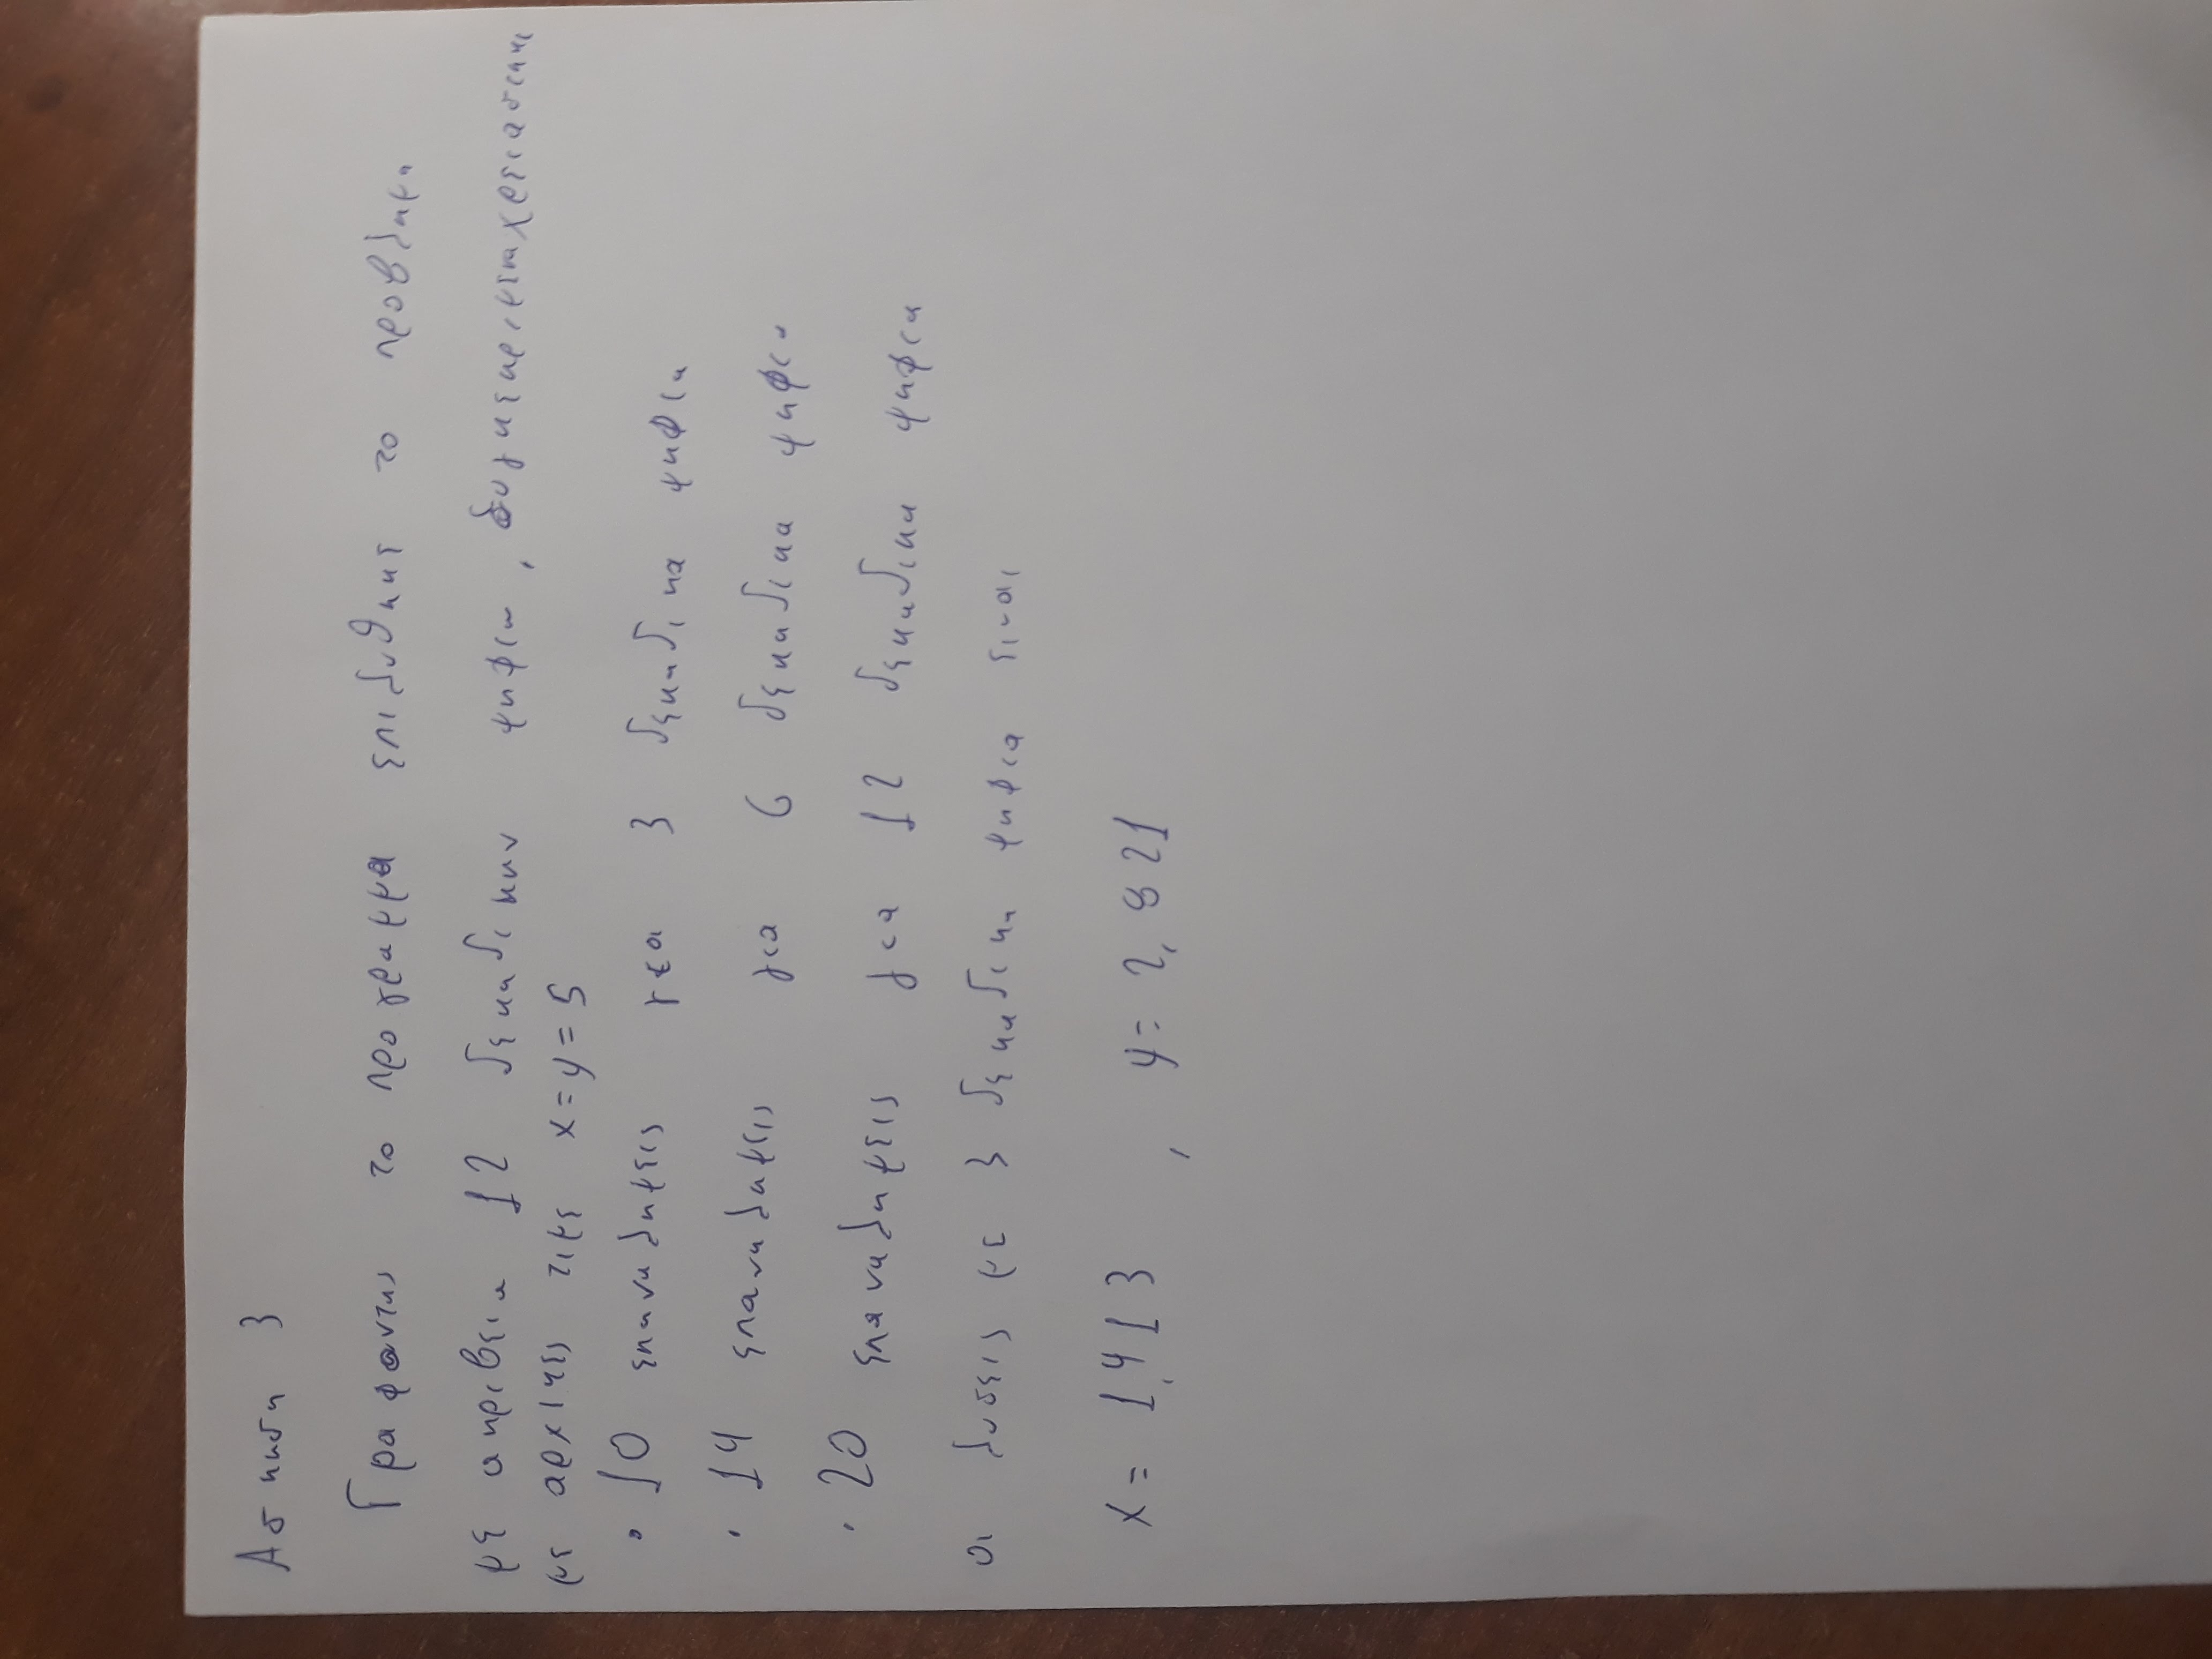 Ασκηση 3
Γραφοντας το προγραμμα επιλυθηκε το προβλημα
με ακριβεια 12 δεκαδικων ψηφιων , συγκεκριμενα χρειαστηκαν
με αρχικες τιμες x = y = 5
• 10 επαναληψεις για 3 δεκαδικα ψηφια
• 14 επαναληψεις για 6 δεκαδικα ψηφια
• 20 επαναληψεις για 12 δεκαδικα ψηφια
οι λυσεις με 3 δεκαδικα ψηφια ειναι
x = 1,413 , y = 2,821